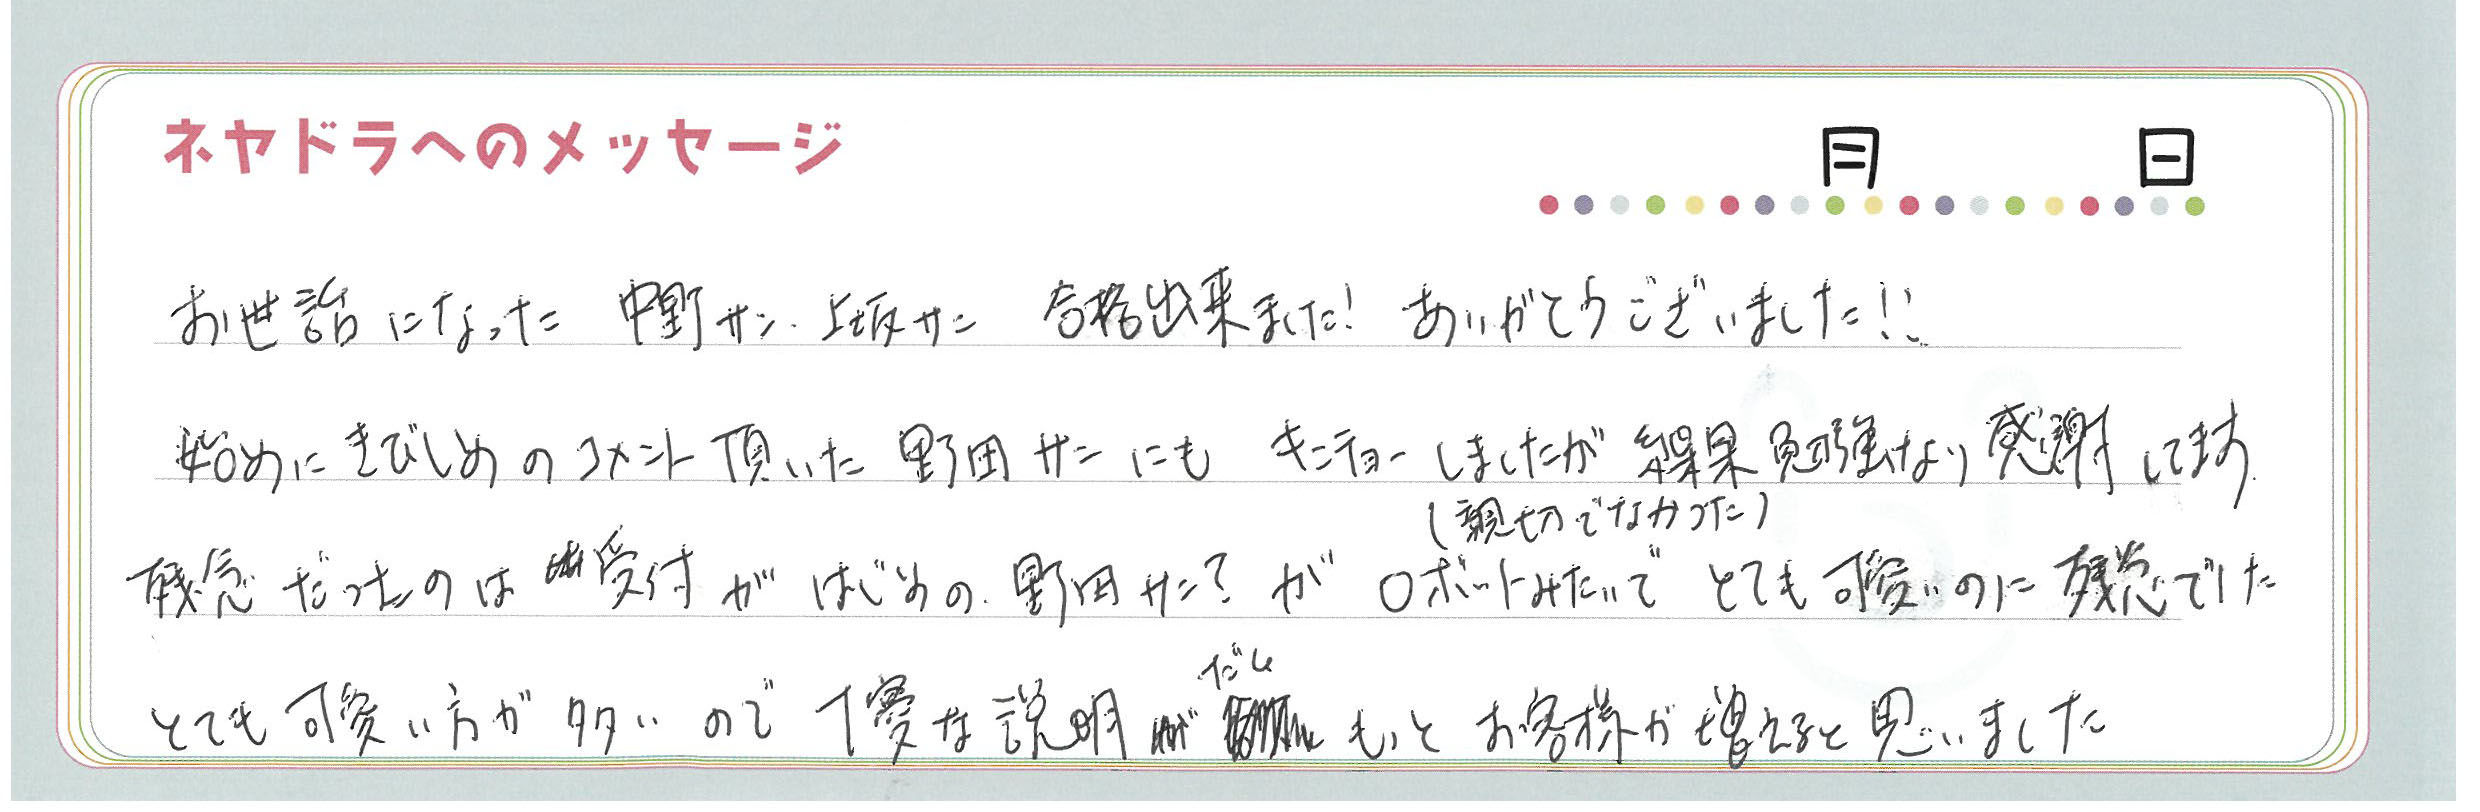 ネヤドラへのメッセージ
月 日
お世話になった 中野サン・上坂サン 合格出来ました! ありがとうございました!!
始めにきびしめのコメント頂いた 野田サンにも キンチョーしましたが 結果勉強なり感謝してます。
(親切でなかった)
残念だったのは 受付が はじめの、野田サン?が ロボットみたいで とても可愛いのに残念でした
だし
とても可愛い方が多いので 丁寧な説明 もっと お客様が増えると思いました